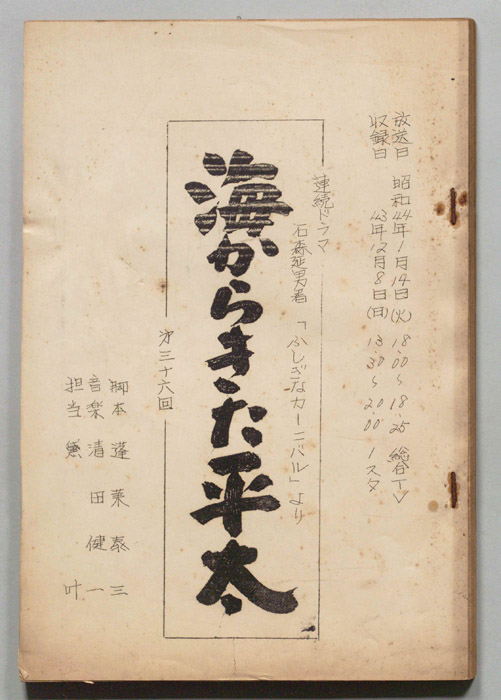 放送日 昭和44年1月14日(火) 18.00〜18.25 総合TV
収録日 43年12月8日(日) 13.30〜20.00 1スタ
連続ドラマ
石森延男著「ふしぎなカーニバル」より
海からきた平太
第三十六回
脚本 蓬莱泰三
音楽 清田健一
担当 黛叶